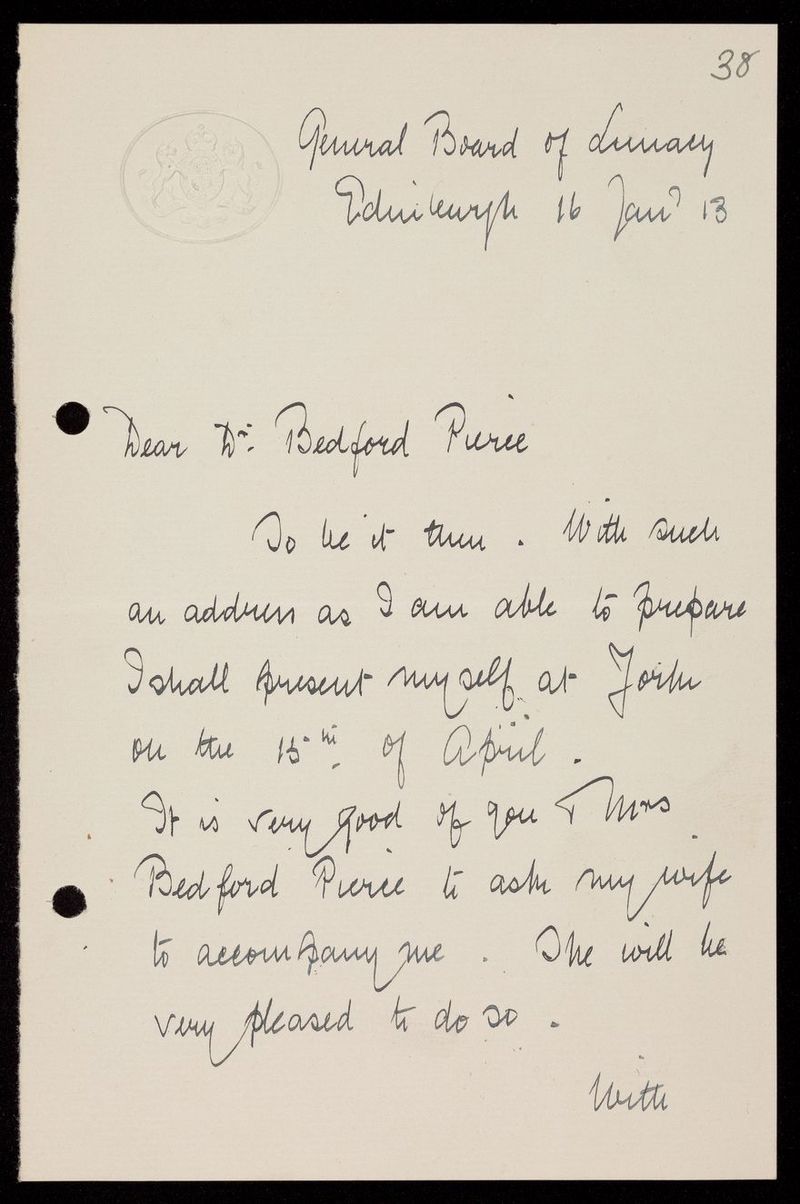 38
General Board of Lunacy
Edinburgh 16 Jany 13
Dear Dr. Bedford Pierce
So be it then. With such
an address as I am able to prepare
I shall present myself at York
on the 15th of April.
It is very good of you & Mrs
Bedford Pierce to ask my wife
to accompany me. She will be
very pleased to do so.
With